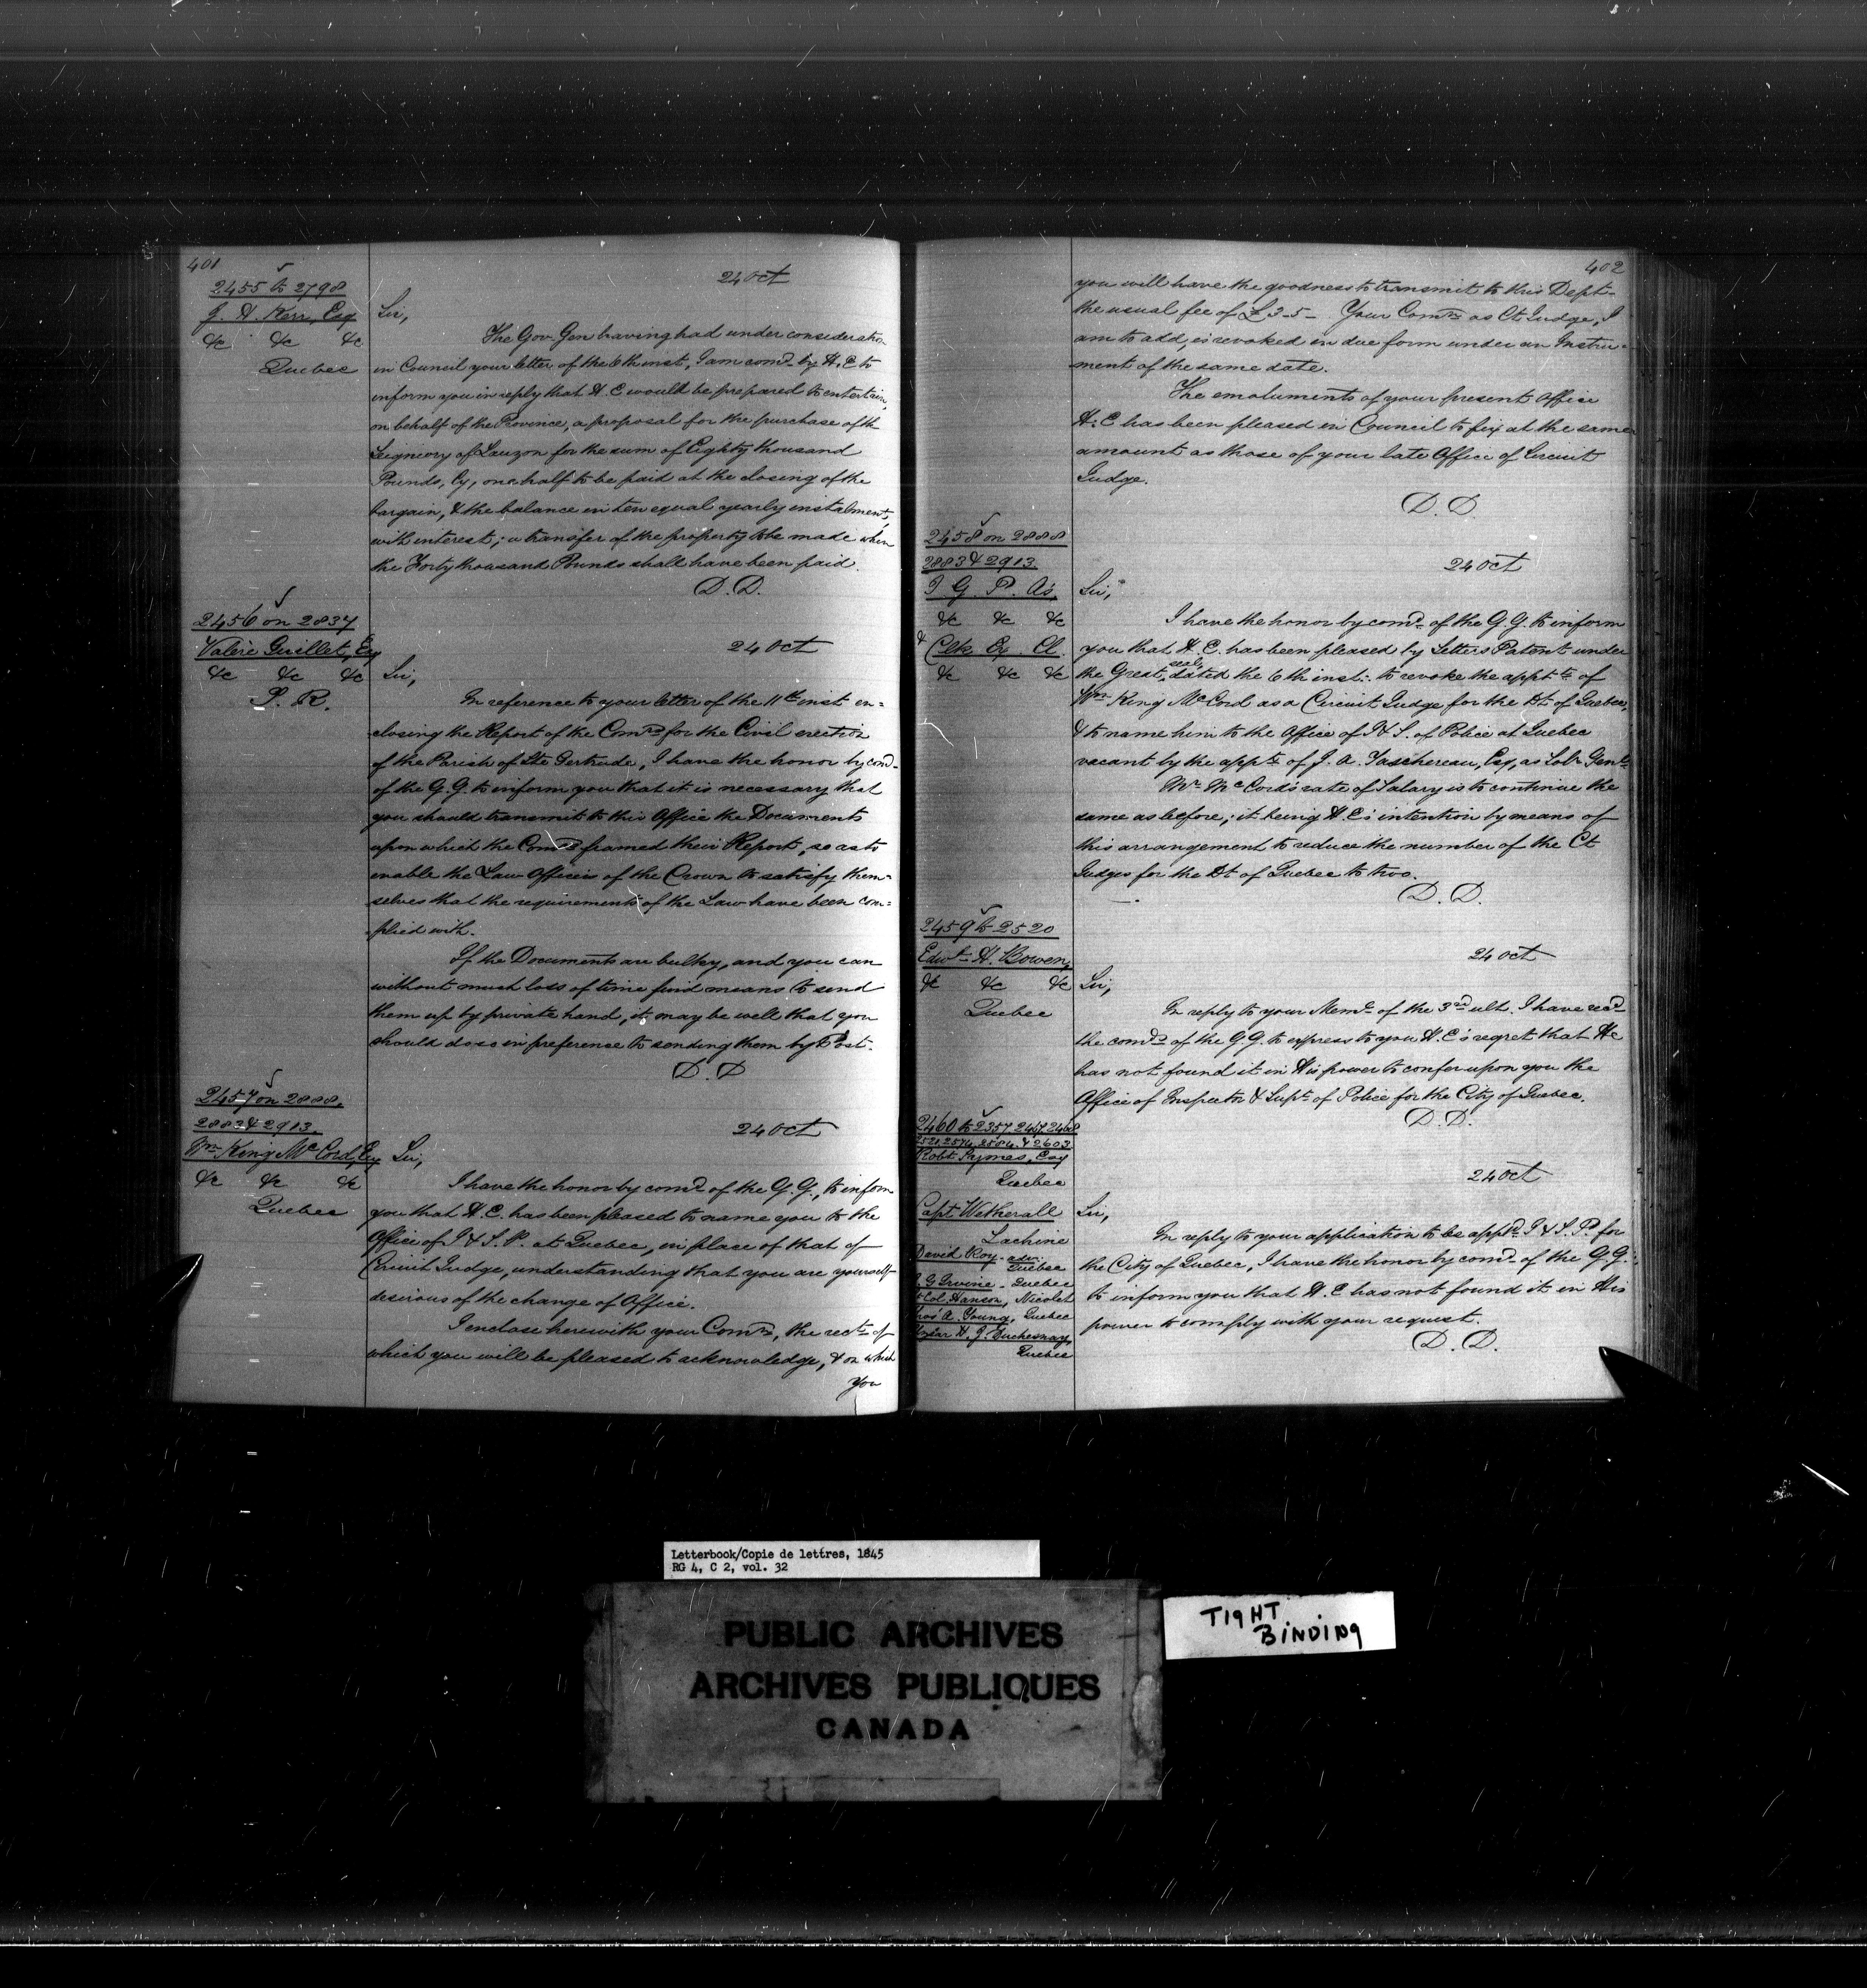 401
2455 to 2798
J. H. Kerr, Esq
&c &c &c
Quebec
24 Oct
Sir,
The Gov. Gen having had under consideratn
in Council your letter of the 6th inst, I am comd. by H. E to
inform you in reply that H. E would be prepared to entertain,
on behalf of the Province, a proposal for the purchase of the
Seigniory of Lauzon for the sum of Eighty thousand
Pounds, Cy, one half to be paid at the closing of the
bargain, & the balance in ten equal yearly instalments,
with interest; a transfer of the property to be made when
the Forty thousand Pounds shall have been paid.
D. D.
2456 on 2837
Valère Guillet, Esq
&c &c &c
24 Oct
Sir,
In reference to your letter of the 11th inst en=
closing the Report of the Comrs for the Civil erection
of the Parish of Ste Gertrude, I have the honor by comd.
of the G. G. to inform you that it is necessary that
you should transmit to this Office the Documents
upon which the Comrs framed their Report, so as to
enable the Law Officers of the Crown to satisfy them=
selves that the requirements of the Law have been com=
plied with.
If the Documents are bulky, and you can
without much loss of time find means to send
them up by private hand, it may be well that you
should do so in preference to sending them by Post.
D. D
2457 on 2888.
2883 & 2913.
Wm King McCord, Esq
&c &c &c
Quebec
24 Oct
Sir,
I have the honor by comd of the G. G., to inform
you that H. E. has been pleased to name you to the
Office of I & S. P. at Quebec, in place of that of
Circuit Judge, understanding that you are yourself
desirous of the change of Office.
I enclose herewith your Comn, the rect. of
which you will be pleased to acknowledge, & on which
you
402
you will have the goodness to transmit to this Dept.
the usual fee of £3.5 - Your Comn as Ct Judge, I
am to add, is revoked in due form under an Instru=
ment of the same date.
The emoluments of your present Office
H. E has been pleased in Council to fix at the same
amount as those of your late Office of Circuit
Judge.
D. D.
2458 on 2888
2883 & 2913.
I G. P. As,
&c &c &c
& Clk Ex. Cl.
&c &c &c
24 Oct
Sir,
I have the honor by comd. of the G. G. to inform
you that H. E. has been pleased by Letters Patent under
the Great seal, dated the 6th inst: to revoke the apptt of
Wm King McCord as a Circuit Judge for the Dt of Quebec,
& to name him to the Office of I & S. of Police at Quebec
vacant by the appt of J. A. Taschereau, Esq, as Solr Genl.
Mr McCord's rate of Salary is to continue the
same as before; it being H. E's intention by means of
this arrangement to reduce the number of the Ct
Judges for the Dt of Quebec to two.
D. D.
2459 to 2520
Edwd. H. Bowen,
&c &c &c
Quebec
24 Oct
Sir,
In reply to your Meml. of the 3rd ult. I have recd
the comds of the G. G. to express to you H. E's regret that He
has not found it in His power to confer upon you the
Office of Inspector & Supt. of Police for the City of Quebec.
D. D.
2460 to 2357, 2457, 2468
2521, 2574, 2584, & 2603
Robt Symes, Esq
Quebec
Capt Wetherall
Lachine
David Roy - adv.
Quebec
J G Irvine - Quebec
Lt Col. Hanson, Nicolet
Thos A. Young, Quebec
H. J. Duchesnay,
Quebec
24 Oct
Sir,
In reply to your application to be appd. I & S. P. for
the City of Quebec, I have the honor by comd. of the G. G.
to inform you that H. E has not found it in His
power to comply with your request.
D. D.
Letterbook/Copie de lettres, 1845
RG 4, C 2, vol. 32
PUBLIC ARCHIVES
ARCHIVES PUBLIQUES
CANADA
TIGHT
BINDING